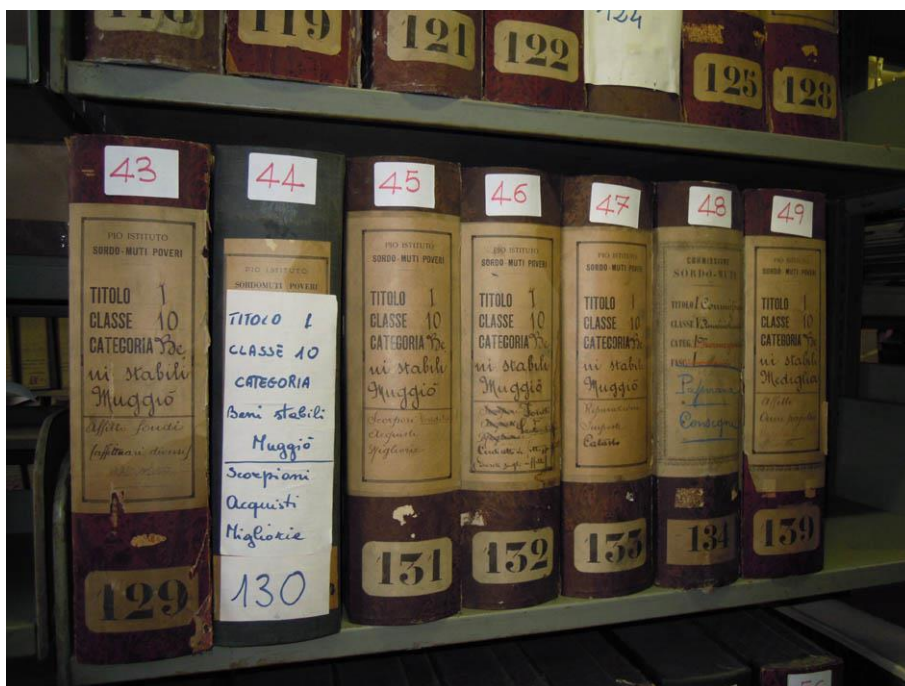 119
121
122
124
125
128
43
PIO ISTITUTO
SORDO-MUTI POVERI
TITOLO 1
CLASSE 10
CATEGORIA Be
ni stabili
Muggiò
Affitti fondi
129
44
PIO ISTITUTO
SORDOMUTI POVERI
TITOLO 1
CLASSE 10
CATEGORIA
Beni stabili
Muggiò
Scorpioni
Acquisti
Migliorie
130
45
PIO ISTITUTO
SORDO-MUTI POVERI
TITOLO 1
CLASSE 10
CATEGORIA Be
ni stabili
Muggiò
Acquisti
Migliorie
131
46
PIO ISTITUTO
SORDO-MUTI POVERI
TITOLO 1
CLASSE 10
CATEGORIA Be
ni stabili
Muggiò
132
47
PIO ISTITUTO
SORDO-MUTI POVERI
TITOLO 1
CLASSE 10
CATEGORIA Be
ni stabili
Muggiò
Riparazioni
Imposte
Catasto
133
48
COMMISSIONE
SORDO-MUTI
TITOLO 1
CLASSE
CATEG.
FASC.
Consegne
134
49
PIO ISTITUTO
SORDO-MUTI POVERI
TITOLO 1
CLASSE 10
CATEGORIA Be
ni stabili
Mediglia
Affitti
139